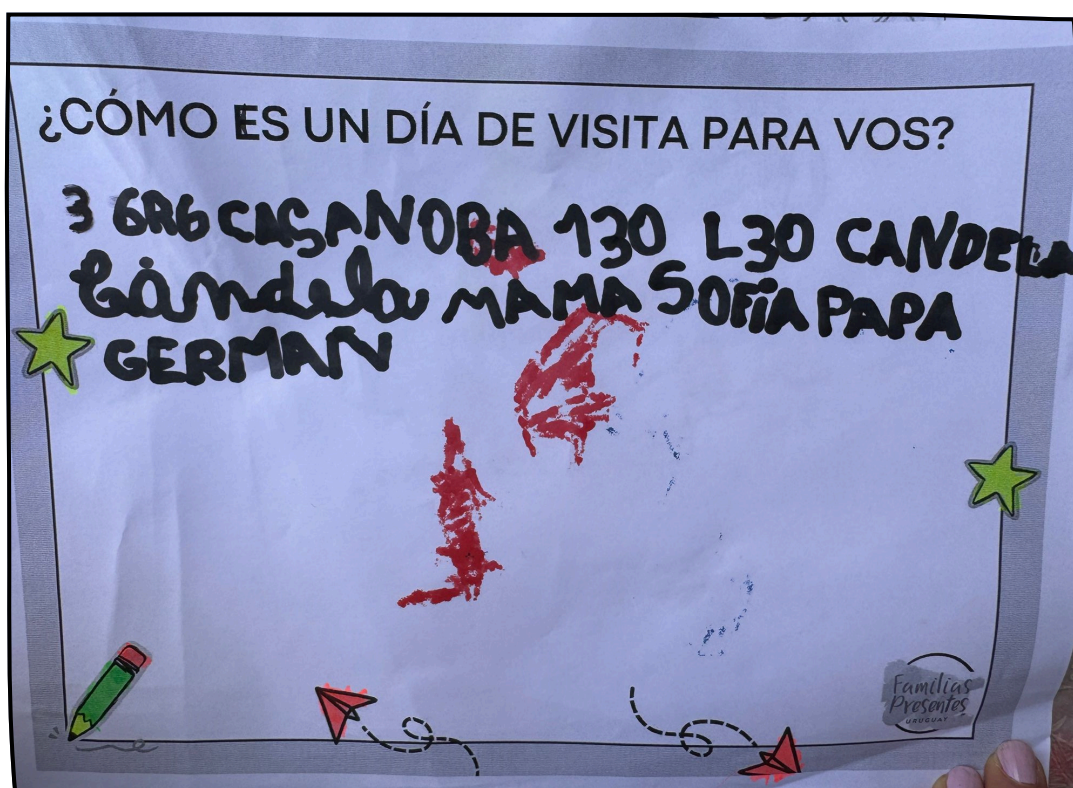 ¿CÓMO ES UN DÍA DE VISITA PARA VOS?
3 GRG CASANOBA 130 L30 CANDELA
Candela MAMA SOFÍA PAPA
GERMAN
Familias
Presentes
URUGUAY